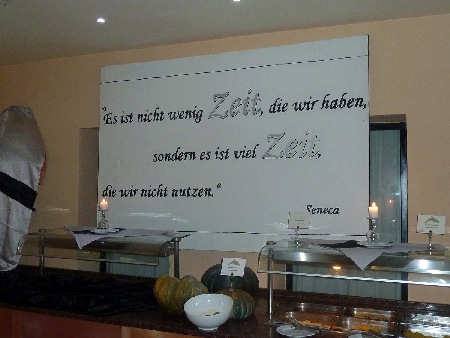 "Es ist nicht wenig Zeit, die wir haben,
sondern es ist viel Zeit,
die wir nicht nutzen."
Seneca